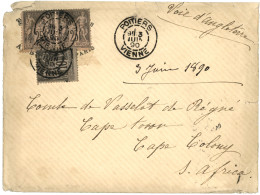 POITIERS
JUIN
90
VIENNE
Voie d'angleterre
3 Juin 1890
Comte de Vasselot de Régné
Cape town
Cape Colony
S. Africa